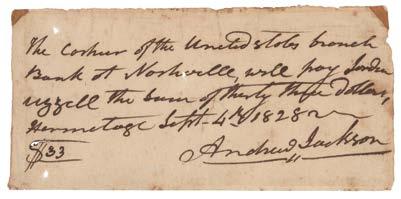 The Cashier of the United states branch
Bank at Nashville, will pay Jordan
uzzell the sum of thirty three Dollars,
Hermitage Sept. 4th 1828
$33
Andrew Jackson